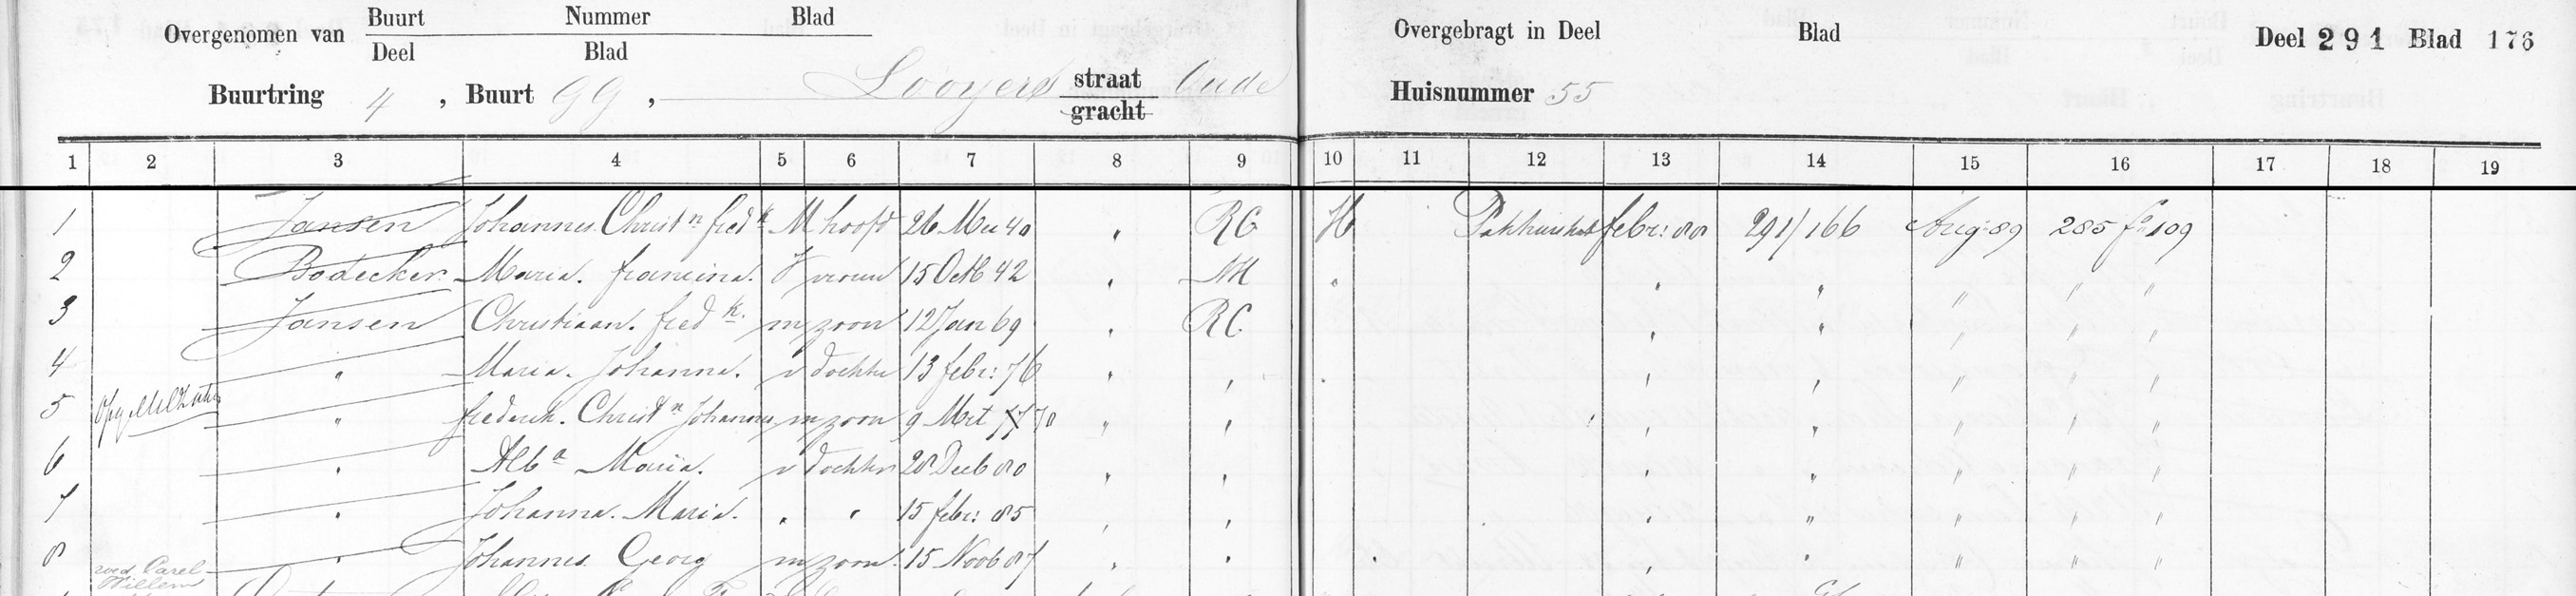 Overgenomen van Buurt Nummer Blad
Deel Blad
Buurtring 4, Buurt GG, Looyers straat Oude
gracht
Overgebragt in Deel Blad Deel 291 Blad 176
Huisnummer 55
1 2 3 4 5 6 7 8 9 10 11 12 13 14 15 16 17 18 19
1 Jansen Johannes Christn fredk M hoofd 26 Mei 40 " RC H Pakhuiskt febr: 88 291/166 Aug: 89 285 fo 109
2 Bodecker Maria francina V vrouw 15 Octb 42 " NH " " " " " "
3 Jansen Christiaan fredk. m zoon 12 Jan 69 " RC " " " " "
4 " Maria Johanna. v dochter 13 febr: 76 " " " " " " " "
5 " frederik Christn Johannes m zoon 9 Mrt 77 78 " " " " " " "
6 " Alba Maria. v dochter 28 Decb 80 " " " " " " "
7 " Johanna Maria. " " 15 febr: 85 " " " " " " "
8 " Johannes Georg m zoon 15 Novb 87 " " " " " " " "
wed Carel
Willem